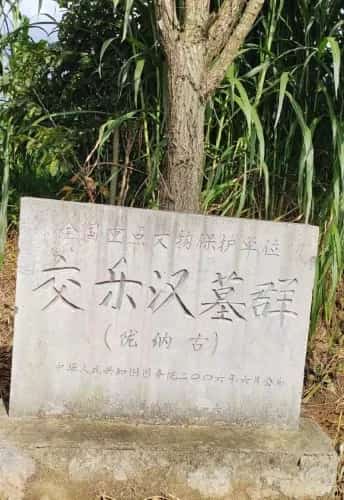 全国重点文物保护单位
交乐汉墓群
(陇纳古)
中华人民共和国国务院二〇〇六年六月公布